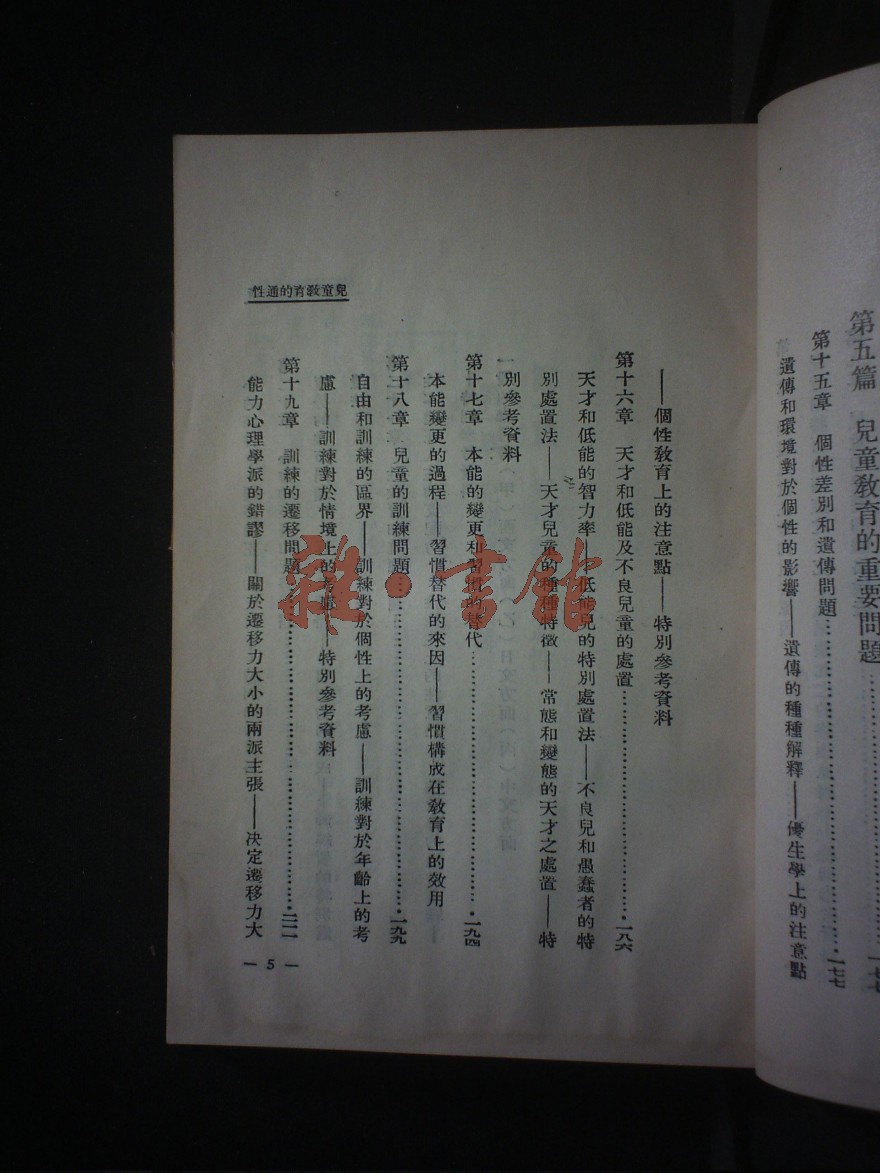 第五篇　兒童教育的重要問題…………………一七七
第十五章　個性差別和遺傳問題…………………一七七
遺傳和環境對於個性的影響——遺傳的種種解釋——優生學上的注意點
——個性教育上的注意點——特別參考資料
第十六章　天才和低能及不良兒童的處置…………………一八六
天才和低能的智力率——低能兒的特別處置法——不良兒和愚蠢者的特
別處置法——天才兒童的種種特徵——常態和變態的天才之處置——特
別參考資料
第十七章　本能的變更和習慣的替代…………………一九四
本能變更的過程——習慣替代的來因——習慣構成在教育上的效用
第十八章　兒童的訓練問題…………………一九九
自由和訓練的區界——訓練對於個性上的考慮——訓練對於年齡上的考
慮——訓練對於情境上的考慮——特別參考資料
第十九章　訓練的遷移問題…………………二一一
能力心理學派的錯謬——關於遷移力大小的兩派主張——決定遷移力大
性通的育教童兒
— 5 —
雜·書館